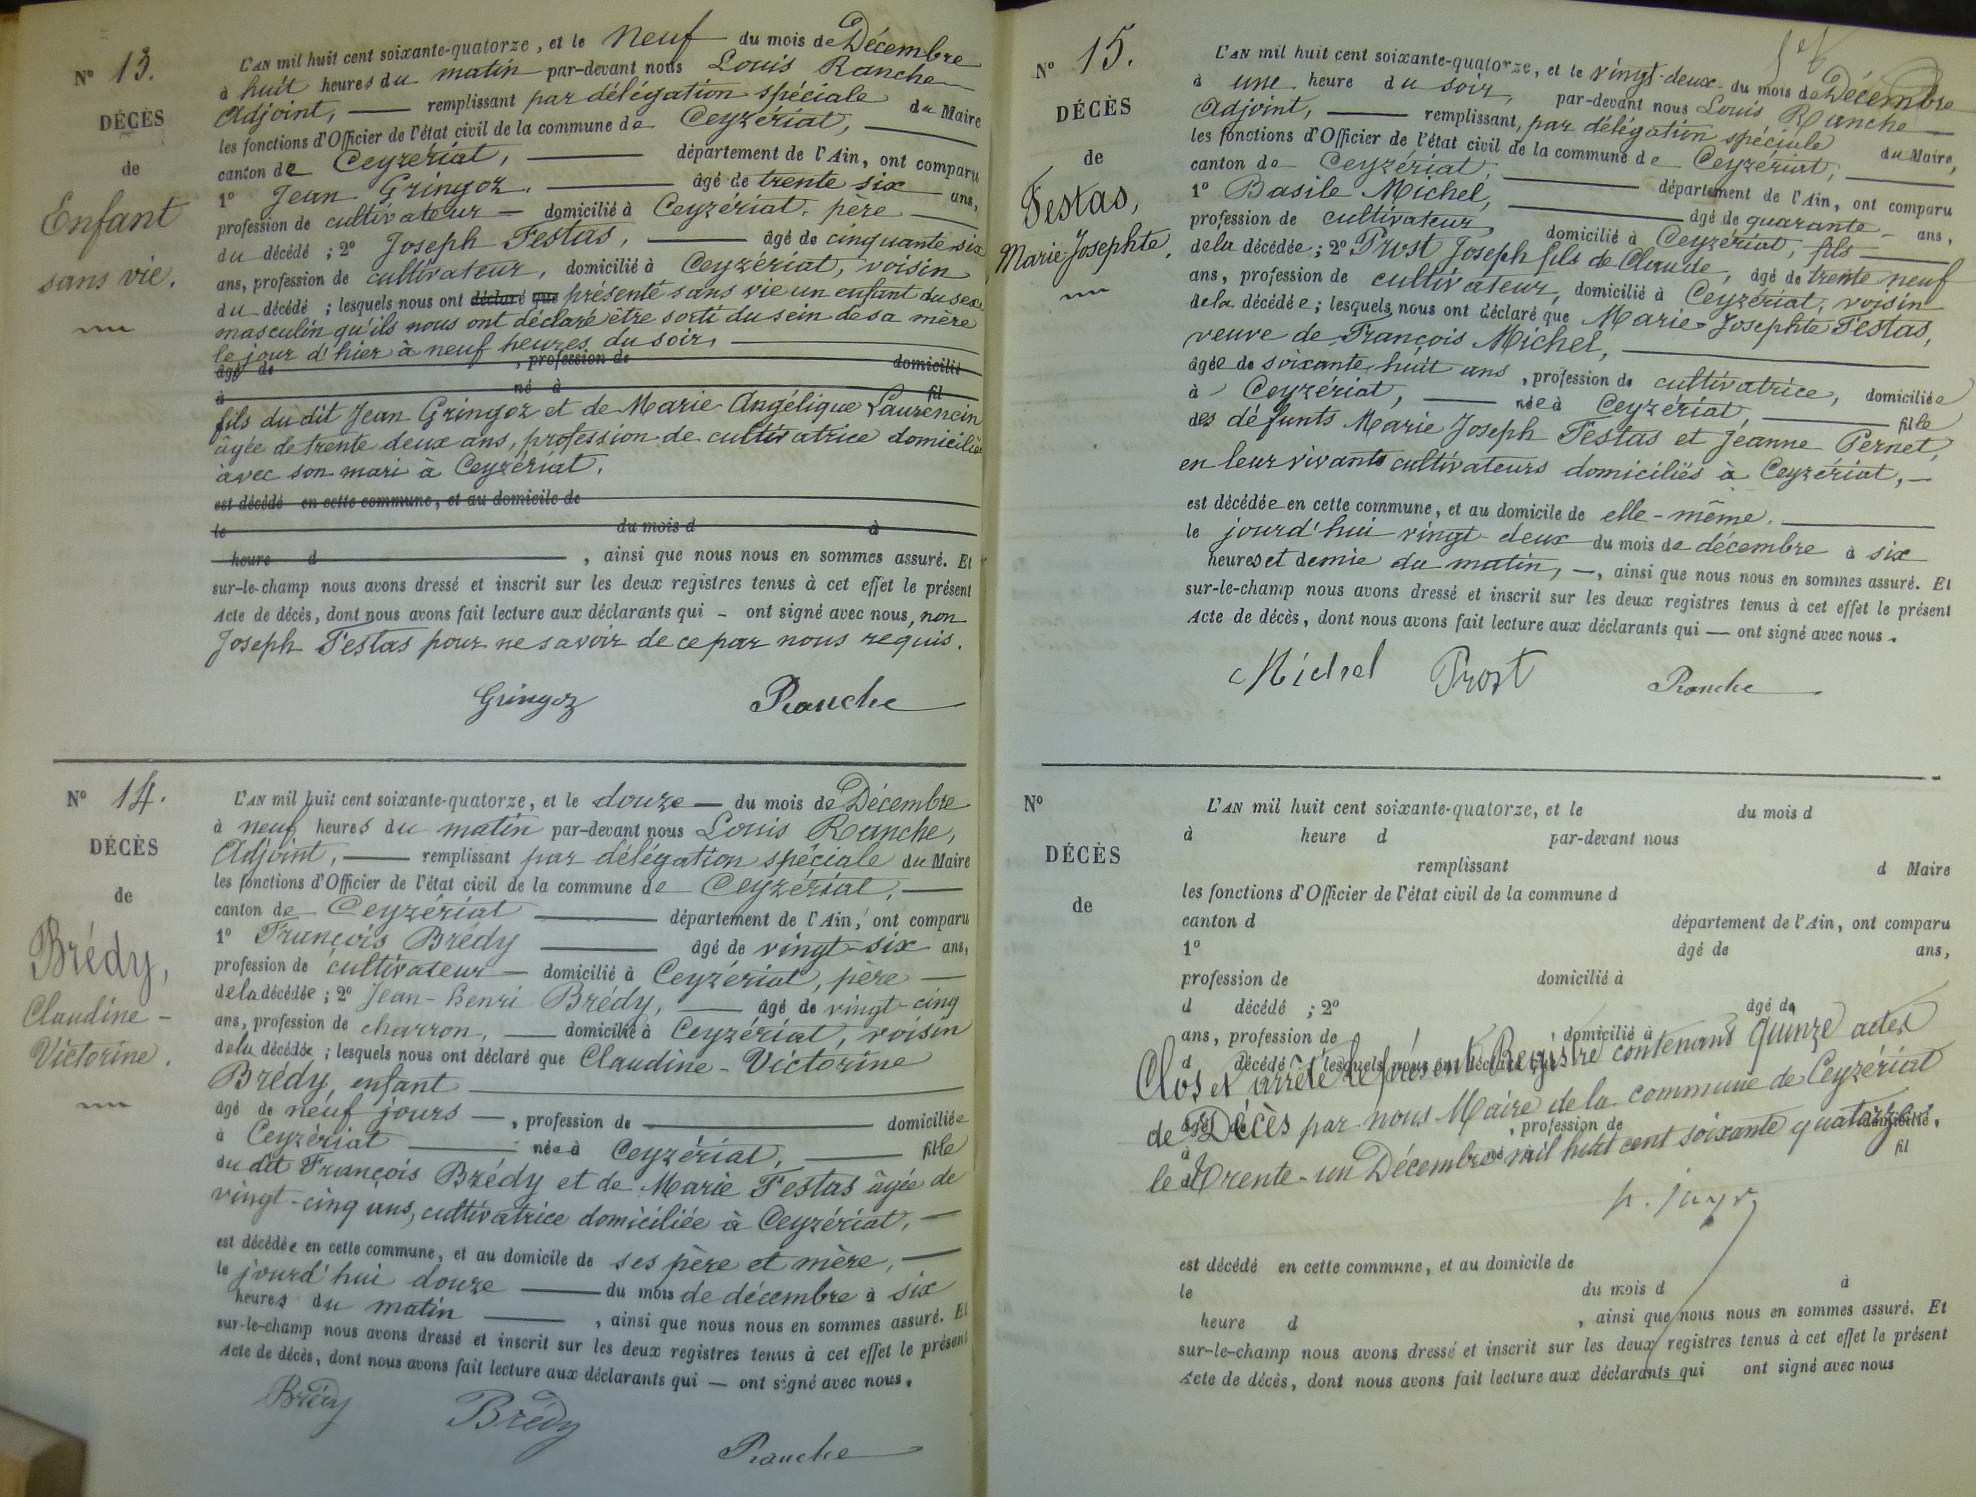 Nº 13.
DÉCÈS
de
Enfant
sans vie.
L'AN mil huit cent soixante-quatorze, et le neuf du mois de Décembre
à huit heures du matin par-devant nous Louis Ranche
Adjoint, remplissant par délégation spéciale du Maire
les fonctions d'Officier de l'état civil de la commune de Ceyzériat,
canton de Ceyzériat, département de l'Ain, ont comparu
1º Jean Gringoz, âgé de trente six ans,
profession de cultivateur domicilié à Ceyzériat, père
du décédé ; 2º Joseph Festas, âgé de cinquante-six
ans, profession de cultivateur, domicilié à Ceyzériat, voisin
du décédé ; lesquels nous ont déclaré que présenté sans vie un enfant du sexe
masculin qu'ils nous ont déclaré être sorti du sein de sa mère
le jour d'hier à neuf heures du soir,
âgé de , profession de domicilié
à né à fil
fils du dit Jean Gringoz et de Marie Angélique Laurencin
âgée de trente deux ans, profession de cultivatrice domiciliée
avec son mari à Ceyzériat.
est décédé en cette commune, et au domicile de
le du mois d à
heure d , ainsi que nous nous en sommes assuré. Et
sur-le-champ nous avons dressé et inscrit sur les deux registres tenus à cet effet le présent
Acte de décès, dont nous avons fait lecture aux déclarants qui – ont signé avec nous, non
Joseph Festas pour ne savoir de ce par nous requis.
Gringoz Ranche
Nº 14.
DÉCÈS
de
Brédy,
Claudine-
Victorine.
L'AN mil huit cent soixante-quatorze, et le douze — du mois de Décembre
à neuf heures du matin par-devant nous Louis Ranche,
Adjoint, remplissant par délégation spéciale du Maire
les fonctions d'Officier de l'état civil de la commune de Ceyzériat,
canton de Ceyzériat département de l'Ain, ont comparu
1º François Brédy âgé de vingt-six ans,
profession de cultivateur — domicilié à Ceyzériat, père
de la décédée ; 2º Jean-henri Brédy, âgé de vingt-cinq
ans, profession de charron, domicilié à Ceyzériat, voisin
de la décédée ; lesquels nous ont déclaré que Claudine-Victorine
Brédy, enfant
âgé de neuf jours —, profession de domiciliée
à Ceyzériat née à Ceyzériat, fille
du dit François Brédy et de Marie Festas âgée de
vingt-cinq ans, cultivatrice domiciliée à Ceyzériat, —
est décédée en cette commune, et au domicile de ses père et mère, —
le jourd'hui douze du mois de décembre à six
heures du matin , ainsi que nous nous en sommes assuré. Et
sur-le-champ nous avons dressé et inscrit sur les deux registres tenus à cet effet le présent
Acte de décès, dont nous avons fait lecture aux déclarants qui — ont signé avec nous.
Brédy Brédy
Ranche
Nº 15.
DÉCÈS
de
Festas,
Marie Josephte.
L'AN mil huit cent soixante-quatorze, et le vingt-deux du mois de Décembre
à une heure du soir, par-devant nous Louis Ranche
Adjoint, remplissant, par délégation spéciale du Maire,
les fonctions d'Officier de l'état civil de la commune de Ceyzériat,
canton de Ceyzériat, département de l'Ain, ont comparu
1º Basile Michel, âgé de quarante ans,
profession de cultivateur, domicilié à Ceyzériat, fils
de la décédée ; 2º Prost Joseph fils de Claude, âgé de trente neuf
ans, profession de cultivateur, domicilié à Ceyzériat, voisin
de la décédée ; lesquels nous ont déclaré que Marie-Josephte Festas,
veuve de François Michel,
âgée de soixante-huit ans, profession de cultivatrice, domiciliée
à Ceyzériat, née à Ceyzériat fille
des défunts Marie Joseph Festas et Jeanne Pernet,
en leur vivants cultivateurs domiciliés à Ceyzériat, —
est décédée en cette commune, et au domicile de elle-même.
le jourd'hui vingt-deux du mois de décembre à six
heures et demie du matin, —, ainsi que nous nous en sommes assuré. Et
sur-le-champ nous avons dressé et inscrit sur les deux registres tenus à cet effet le présent
Acte de décès, dont nous avons fait lecture aux déclarants qui — ont signé avec nous.
Michel Prost Ranche
Nº
DÉCÈS
de
L'AN mil huit cent soixante-quatorze, et le du mois d
à heure d par-devant nous
remplissant d Maire
les fonctions d'Officier de l'état civil de la commune d
canton d département de l'Ain, ont comparu
1º âgé de ans,
profession de domicilié à
d décédé ; 2º âgé de
ans, profession de , domicilié à
d décédé ; lesquels nous ont déclaré
Clos et arrêté le présent Registre contenant quinze actes
de Décès par nous Maire de la commune de Ceyzériat
, profession de domicilié
le trente-un Décembre mil huit cent soixante quatorze.
fil
est décédé en cette commune, et au domicile de
le du mois d à
heure d , ainsi que nous nous en sommes assuré. Et
sur-le-champ nous avons dressé et inscrit sur les deux registres tenus à cet effet le présent
Acte de décès, dont nous avons fait lecture aux déclarants qui ont signé avec nous